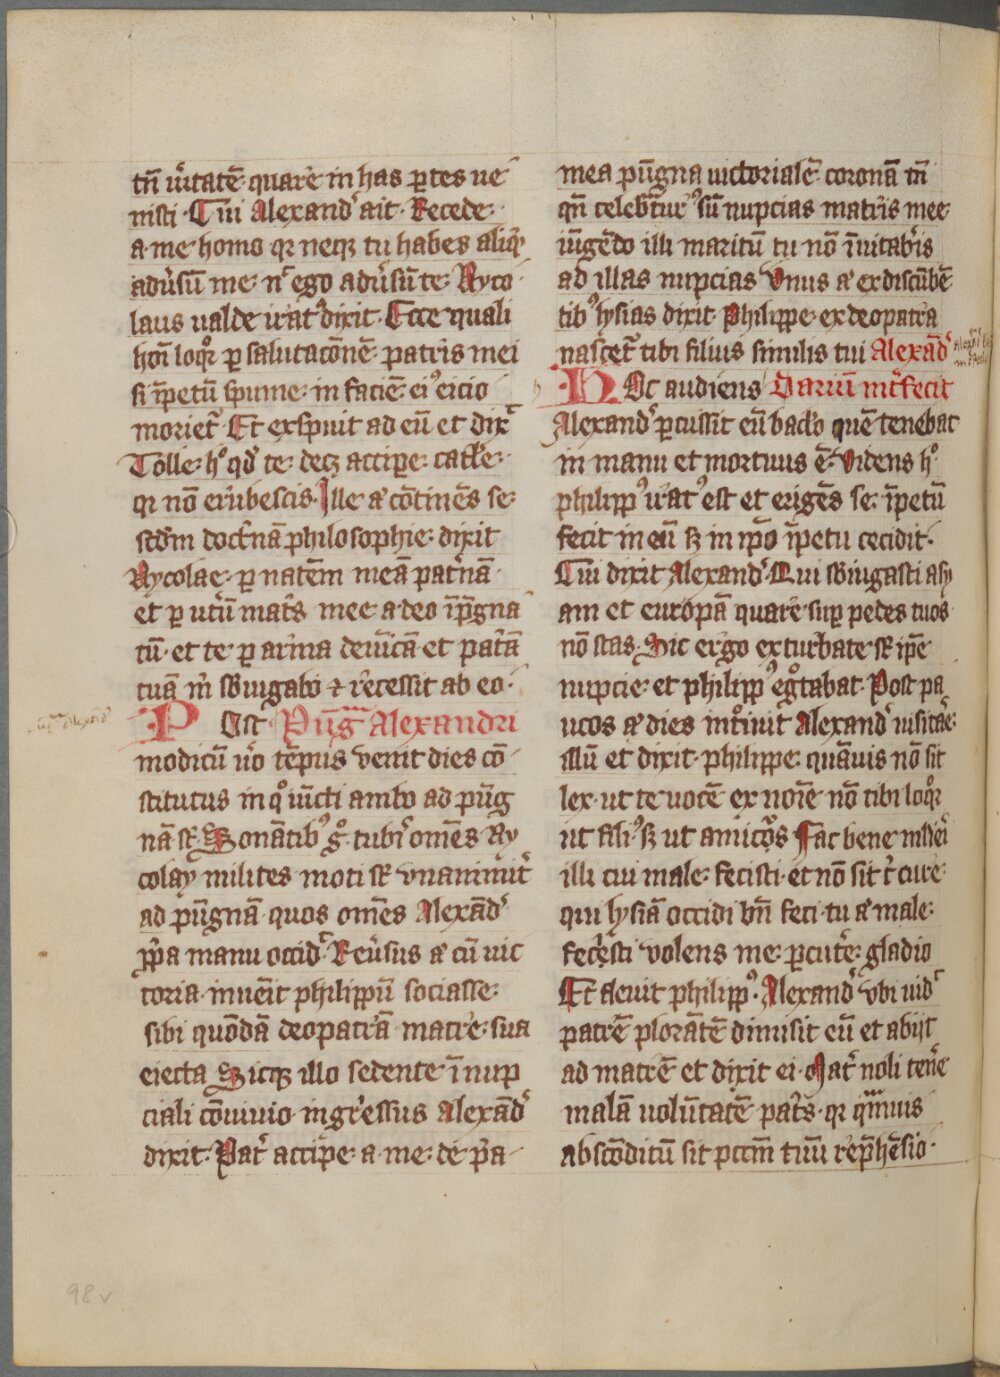 tn̄ ũitatē quare in has ꝑtes ue
nisti · Cui Alexandʾ ait · Recede
a me homo qr neqꝫ tu habes aliqͥd
adũsū me nͨ ego adũsū te · Nyco
laus ualde iratʾ dixit · Ecce quali
hōi loqͦr ꝑ salutacōnē patris mei
si īpetū spume in faciē eiʾ eicio
morietʳ · Et exspuit ad eū et dixͭ
Tolle hͦ qd̓ te decꝫ accipe catl̓e
qr nō erubescis · Ille aͭ cōtinēs se
scd̓m doctͥnā philosophie dixit
Nycolae ꝑ natēm meā patͥnā
et ꝑ utͥū matͥs mee a deo īp̄gna
tū et te ꝑ arma deuīcā et patͥā
tuā m̓ sb̓iugabo ⁊ recessit ab eo ·
Ost Pūgͣ Alexandri
modicū ũo tēpus venit dies cō
stitutus in qͦ iūcti ambo ad pūg
nā sͭ · Sonātibʾ gͦ tubͥ omēs Ny
colay milites moti sͭ vnanimit̓
ad pūgnā quos omēs Alexādʾ
ꝓpͥa manu occidͭ · Reũsus aͭ cū uic
toria inuēit philippū sociasse
sibi quōdā cleopatrā matre sua
eiecta Sicqꝫ illo sedente ī nup
ciali cōuiuio ingressus Alexādʾ
dixit · Pat̓ accipe a me de pͥa
mea pūgna uictorialē coronā tn̄
qn̄ celebrͣturʾ sū nupcias matris mee
iūgēdo illi maritū tu nō īuitabͥis
ad illas nupcias Vnus aͭ ex discūbē
tibʾ lysias dixit · Philippe ex cleopatra
nascetʳ tibi filius similis tui Alexādʾ
Oc audiens Dariū īt̓fecit
Alexandʾ ꝑcussit eū bacl̓o quē tenebat
in manu et mortuus ē · Videns hͦ
philippʾ iratʾ est et erigēs se īpetū
fecit in eū sꝫ in ip̄o īpetu cecidit ·
Cui dixit Alexandʾ · Qui sb̓iugasti asy
am et europā quare suꝑ pedes tuos
nō stas · Sic ergo exturbate sͭ ip̄e
nupcie et philippʾ egͦtabat · Post pa
ucos aͭ dies intͦiuit Alexandʾ uisitāe
illū et dixit · philippe quāuis nō sit
lex ut te vocē ex noīe nō tibi loqͦr
ut filiʾ sꝫ ut amicꝰ Fac bene mlieri
illi cui male fecisti · et nō sit t̓ cure
qui lysiā occidi bn̄ feci · tu aͭ male
fecisti volens me ꝑcut̓e gladio
Et fleuit philippʾ · Alexandʾ vbi uidͭ
patrē plorātē dimisit eū et abijt
ad matrē et dixit ei · Mat̓ noli ten̓e
malā uolūtatē patͥs · qr qͣmuis
abscōditū sit pccm̄ tuū rep̄hēsio
98v